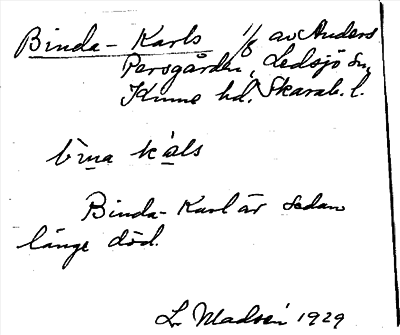 Binda-Karls 1/8 av Anders
Persgården, Ledsjö sn,
Kinne hd. Skarab. l.
Binda-Karl är sedan
länge död.
L. Madsén 1929